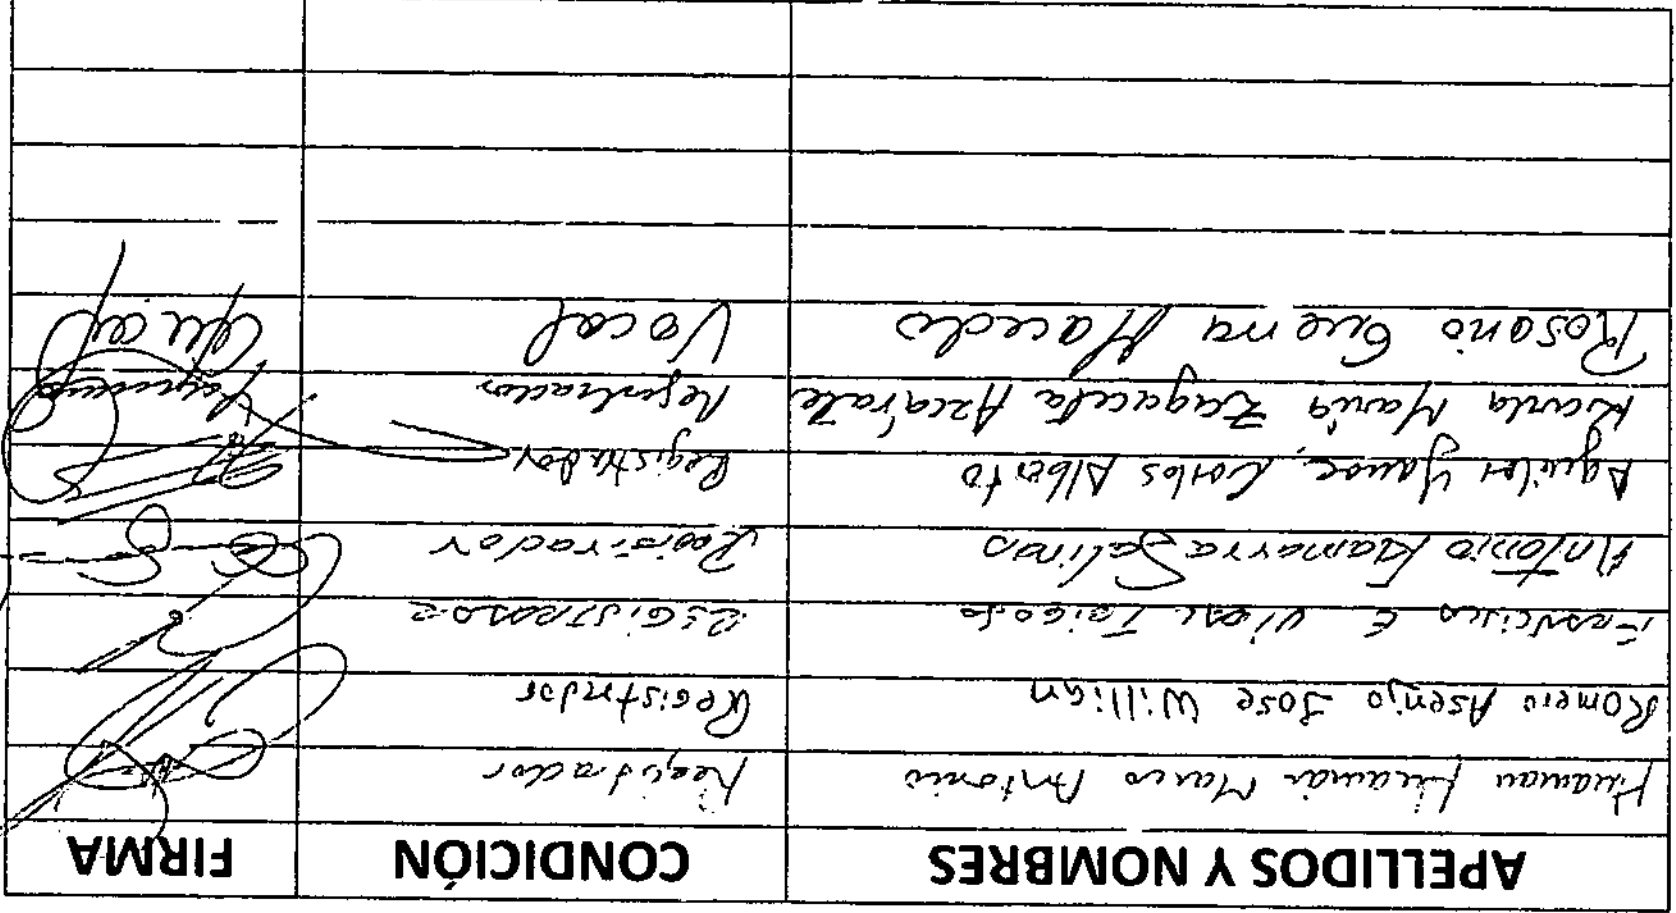 APELLIDOS Y NOMBRES CONDICIÓN FIRMA
Huaman Huamán Marco Antonio Registrador
Romero Asenjo Jose Willian Registrador
Francisco E Vidal Registrador
Antonio Gamarra Salinas Registrador
Aguilar Yanac, Carlos Alberto Registrador
Karla María Zagaceta Azcárate Registrador
Rosario Guerra Macedo Vocal